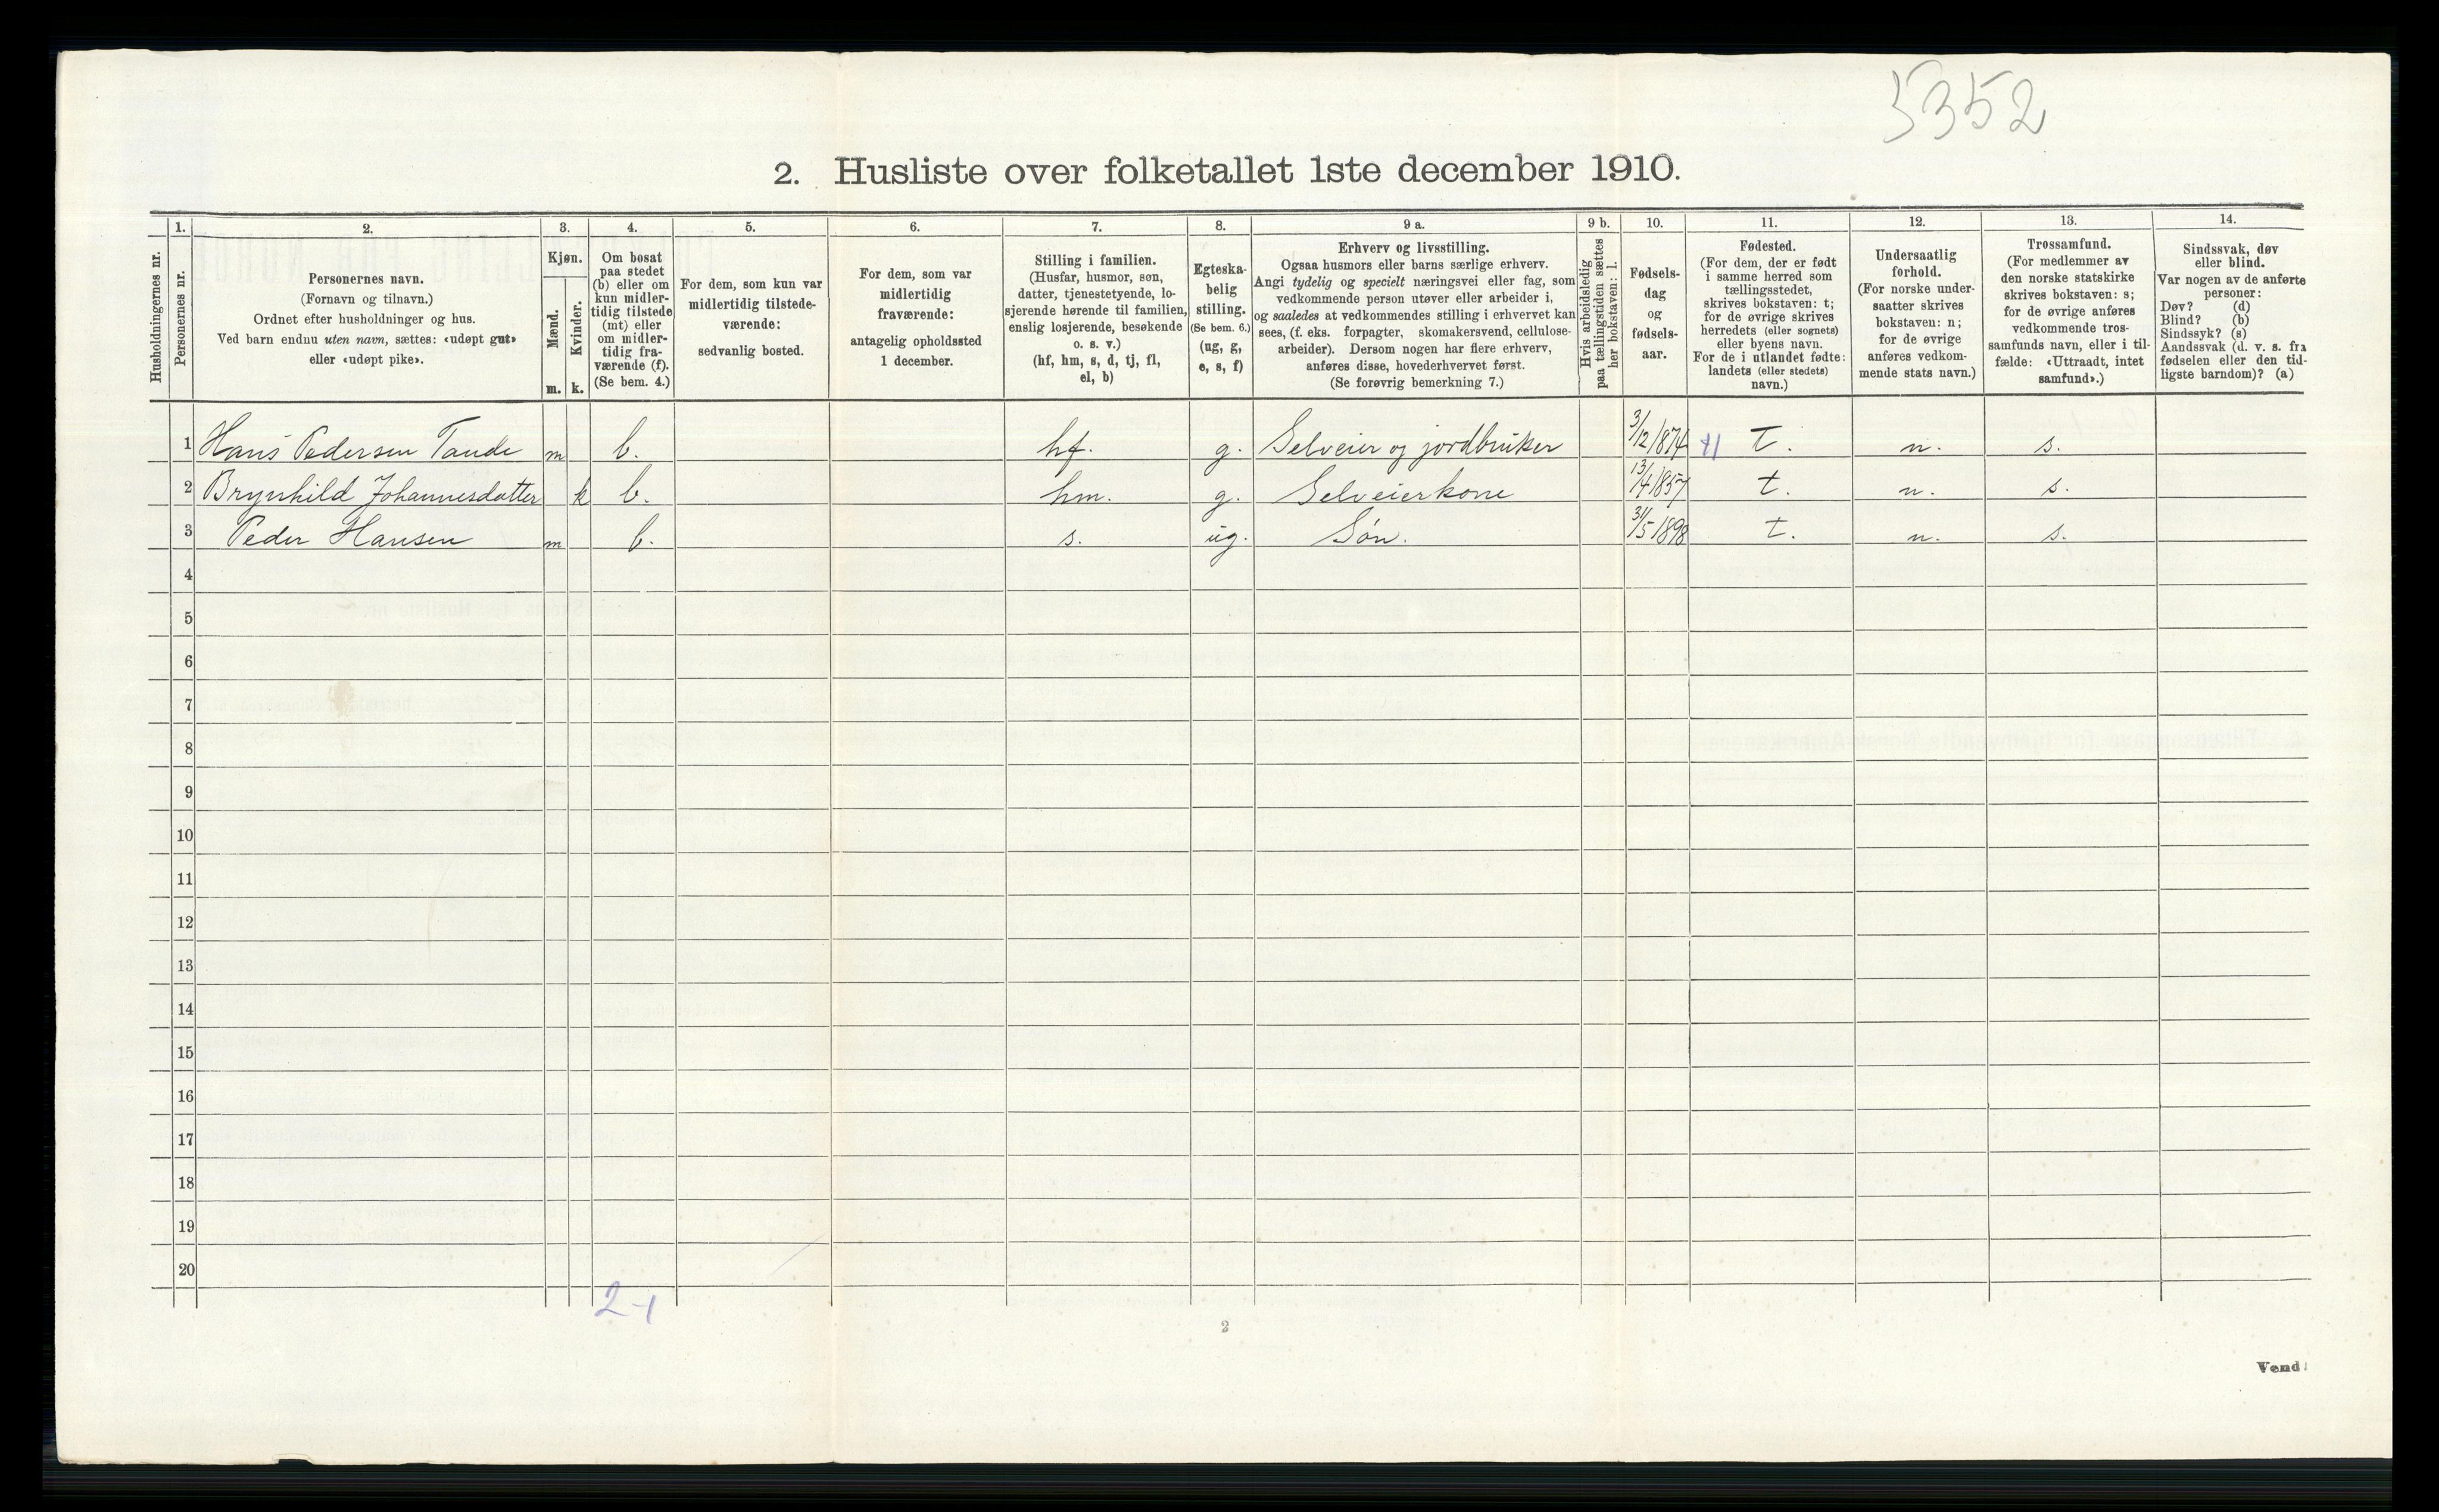 5352
2. Husliste over folketallet 1ste december 1910.
Husholdningernes nr.
1.
Personernes nr.
2.
Personernes navn.
(Fornavn og tilnavn.)
Ordnet efter husholdninger og hus.
Ved barn endnu uten navn, sættes: «udøpt gut»
eller «udøpt pike».
3.
Kjøn.
Mænd.
m.
Kvinder.
k.
4.
Om bosat
paa stedet
(b) eller om
kun midler-
tidig tilstede
(mt) eller
om midler-
tidig fra-
værende (f).
(Se bem. 4.)
5.
For dem, som kun var
midlertidig tilstede-
værende:
sedvanlig bosted.
6.
For dem, som var
midlertidig
fraværende:
antagelig opholdssted
1 december.
7.
Stilling i familien.
(Husfar, husmor, søn,
datter, tjenestetyende, lo-
sjerende hørende til familien,
enslig losjerende, besøkende
o. s. v.)
(hf, hm, s, d, tj, fl,
el, b)
8.
Egteska-
belig
stilling.
(Se bem. 6.)
(ug, g,
e, s, f)
9 a.
Erhverv og livsstilling.
Ogsaa husmors eller barns særlige erhverv.
Angi tydelig og specielt næringsvei eller fag, som
vedkommende person utøver eller arbeider i,
og saaledes at vedkommendes stilling i erhvervet kan
sees, (f. eks. forpagter, skomakersvend, cellulose-
arbeider). Dersom nogen har flere erhverv,
anføres disse, hovederhvervet først.
(Se forøvrig bemerkning 7.)
9 b.
Hvis arbeidsledig
paa tællingstiden sættes
her bokstaven: l.
10.
Fødsels-
dag
og
fødsels-
aar.
11.
Fødested.
(For dem, der er født
i samme herred som
tællingsstedet,
skrives bokstaven: t;
for de øvrige skrives
herredets (eller sognets)
eller byens navn.
For de i utlandet fødte:
landets (eller stedets)
navn.)
12.
Undersaatlig
forhold.
(For norske under-
saatter skrives
bokstaven: n;
for de øvrige
anføres vedkom-
mende stats navn.)
13.
Trossamfund.
(For medlemmer av
den norske statskirke
skrives bokstaven: s;
for de øvrige anføres
vedkommende tros-
samfunds navn, eller i til-
fælde: «Uttraadt, intet
samfund».)
14.
Sindssvak, døv
eller blind.
Var nogen av de anførte
personer:
Døv? (d)
Blind? (b)
Sindssyk? (s)
Aandssvak (d. v. s. fra
fødselen eller den tid-
ligste barndom)? (a)
1 Hans Pedersen Tande m b. hf. g. Selveier og jordbruker 3/12/874 t. n. s.
2 Brynhild Johannesdatter k b. hm. g. Selveierkone 13/4/857 t. n. s.
3 Peder Hansen m b. s. ug. Søn. 31/5 1898 t. n. s.
4
5
6
7
8
9
10
11
12
13
14
15
16
17
18
19
20
2-1
2
Vend!